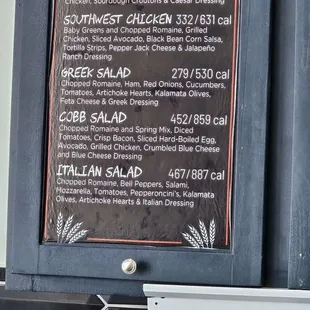 Chicken, Sourdough Croutons & Caesar Dressing
SOUTHWEST CHICKEN 332/631 cal
Baby Greens and Chopped Romaine, Grilled
Chicken, Sliced Avocado, Black Bean Corn Salsa,
Tortilla Strips, Pepper Jack Cheese & Jalapeño
Ranch Dressing
GREEK SALAD 279/530 cal
Chopped Romaine, Ham, Red Onions, Cucumbers,
Tomatoes, Artichoke Hearts, Kalamata Olives,
Feta Cheese & Greek Dressing
COBB SALAD 452/859 cal
Chopped Romaine and Spring Mix, Diced
Tomatoes, Crisp Bacon, Sliced Hard-Boiled Egg,
Avocado, Grilled Chicken, Crumbled Blue Cheese
and Blue Cheese Dressing
ITALIAN SALAD 467/887 cal
Chopped Romaine, Bell Peppers, Salami,
Mozzarella, Tomatoes, Pepperoncini's, Kalamata
Olives, Artichoke Hearts & Italian Dressing